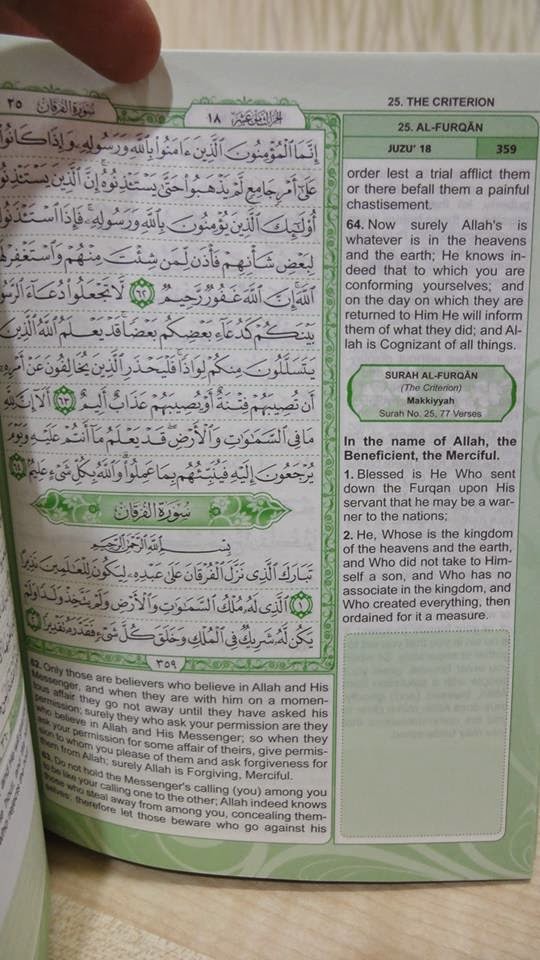 الجزء الثامن عشر ١٨
سورة الفرقان ٢٥
إِنَّمَا الْمُؤْمِنُونَ الَّذِينَ ءَامَنُوا بِاللَّهِ وَرَسُولِهِ وَإِذَا كَانُوا
عَلَىٰ أَمْرٍ جَامِعٍ لَّمْ يَذْهَبُوا حَتَّىٰ يَسْتَـْٔذِنُوهُ إِنَّ الَّذِينَ يَسْتَـْٔذِنُو
أُولَٰئِكَ الَّذِينَ يُؤْمِنُونَ بِاللَّهِ وَرَسُولِهِ فَإِذَا اسْتَـْٔذَنُو
لِبَعْضِ شَأْنِهِمْ فَأْذَن لِّمَن شِئْتَ مِنْهُمْ وَاسْتَغْفِرْ
اللَّهَ إِنَّ اللَّهَ غَفُورٌ رَّحِيمٌ ٦٢ لَّا تَجْعَلُوا دُعَاءَ الرَّسُو
بَيْنَكُمْ كَدُعَاءِ بَعْضِكُم بَعْضًا قَدْ يَعْلَمُ اللَّهُ الَّذِينَ
يَتَسَلَّلُونَ مِنكُمْ لِوَاذًا فَلْيَحْذَرِ الَّذِينَ يُخَالِفُونَ عَنْ أَمْرِهِ
أَن تُصِيبَهُمْ فِتْنَةٌ أَوْ يُصِيبَهُمْ عَذَابٌ أَلِيمٌ ٦٣ أَلَا إِنَّ لِلَّهِ
مَا فِي السَّمَاوَاتِ وَالْأَرْضِ قَدْ يَعْلَمُ مَا أَنتُمْ عَلَيْهِ وَيَوْمَ
يُرْجَعُونَ إِلَيْهِ فَيُنَبِّئُهُم بِمَا عَمِلُوا وَاللَّهُ بِكُلِّ شَيْءٍ عَلِيمٌ ٦٤
سُورَةُ الْفُرْقَانِ
بِسْمِ اللَّهِ الرَّحْمَٰنِ الرَّحِيمِ
تَبَارَكَ الَّذِي نَزَّلَ الْفُرْقَانَ عَلَىٰ عَبْدِهِ لِيَكُونَ لِلْعَالَمِينَ نَذِيرًا
١ الَّذِي لَهُ مُلْكُ السَّمَاوَاتِ وَالْأَرْضِ وَلَمْ يَتَّخِذْ وَلَدًا وَلَمْ
يَكُن لَّهُ شَرِيكٌ فِي الْمُلْكِ وَخَلَقَ كُلَّ شَيْءٍ فَقَدَّرَهُ تَقْدِيرًا ٢
٣٥٩
62. Only those are believers who believe in Allah and His
Messenger, and when they are with him on a momen-
tous affair they go not away until they have asked his
permission; surely they who ask your permission are they
who believe in Allah and His Messenger; so when they
ask your permission for some affair of theirs, give permis-
sion to whom you please of them and ask forgiveness for
them from Allah; surely Allah is Forgiving, Merciful.
63. Do not hold the Messenger's calling (you) among you
to be like your calling one to the other; Allah indeed knows
those who steal away from among you, concealing them-
selves; therefore let those beware who go against his
25. THE CRITERION
25. AL-FURQĀN
JUZU' 18 359
order lest a trial afflict them
or there befall them a painful
chastisement.
64. Now surely Allah's is
whatever is in the heavens
and the earth; He knows in-
deed that to which you are
conforming yourselves; and
on the day on which they are
returned to Him He will inform
them of what they did; and Al-
lah is Cognizant of all things.
SURAH AL-FURQĀN
(The Criterion)
Makkiyyah
Surah No. 25, 77 Verses
In the name of Allah, the
Beneficient, the Merciful.
1. Blessed is He Who sent
down the Furqan upon His
servant that he may be a war-
ner to the nations;
2. He, Whose is the kingdom
of the heavens and the earth,
and Who did not take to Him-
self a son, and Who has no
associate in the kingdom, and
Who created everything, then
ordained for it a measure.